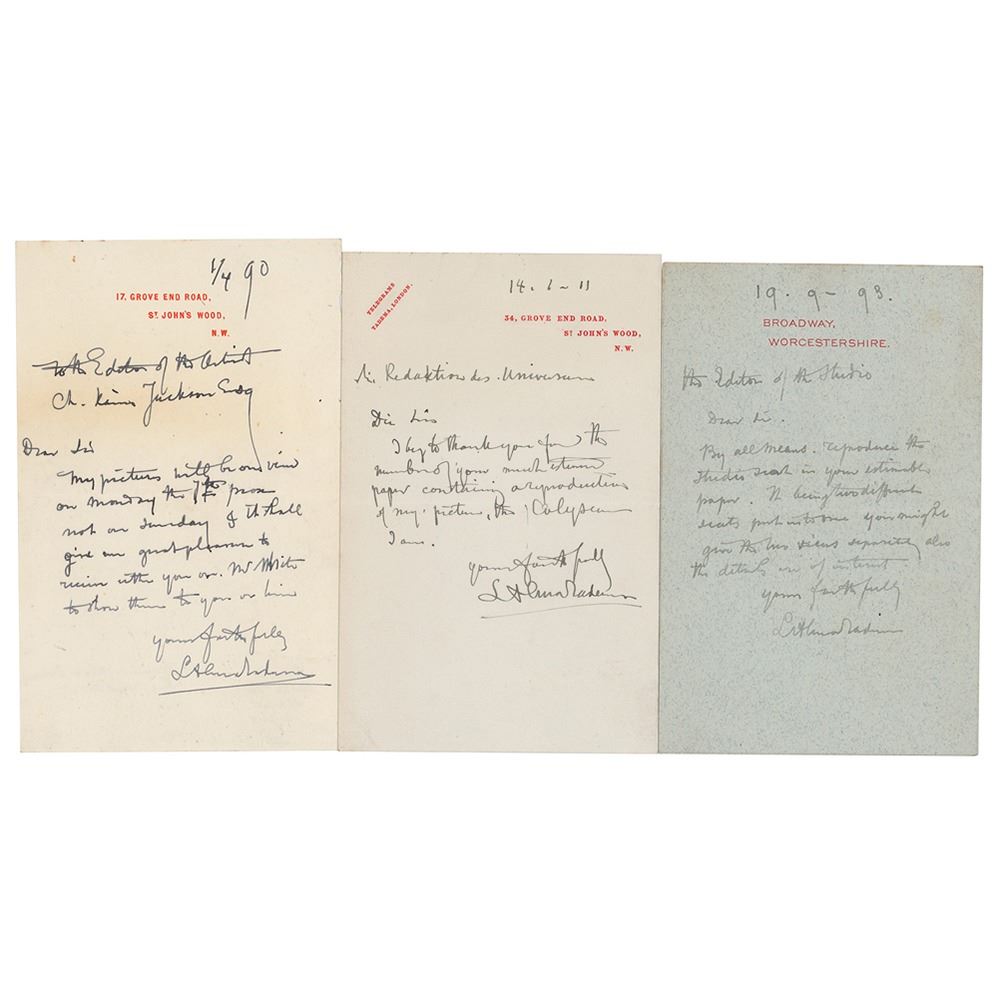 1/4 90
17. GROVE END ROAD,
ST JOHN'S WOOD,
N.W.
to the Editor of the Artist
Ch. Kains Jackson Esq
Dear Sir
My pictures will be on view
on Monday the 7th prox
not on Sunday & it shall
give me great pleasure to
receive either you or Mr White
to show them to you or him
yours faithfully
L Alma Tadema
TELEGRAMS
TADEMA, LONDON.
14. 6 - 11
34, GROVE END ROAD.
ST JOHN'S WOOD,
N.W.
Redaktion des Universum
Dear Sirs
I beg to thank you for the
number of your much esteemed
paper containing a reproduction
of my picture, the Colyseum
I am.
yours faithfully
L Alma Tadema
19. 9 - 93.
BROADWAY,
WORCESTERSHIRE.
the Editor of the Studio
Dear Sir.
By all means reproduce the
Studio seat in your estimable
paper. It being two different
seats put into one you might
give the two views separately also
the details are of interest
yours faithfully
L Alma Tadema